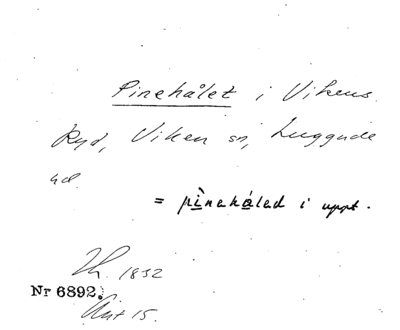 Pinehålet i Vikens
Ryd, Viken sn, Luggude
hd.
= pìnahálad i uppt.
1832
Nr 6892.
15.